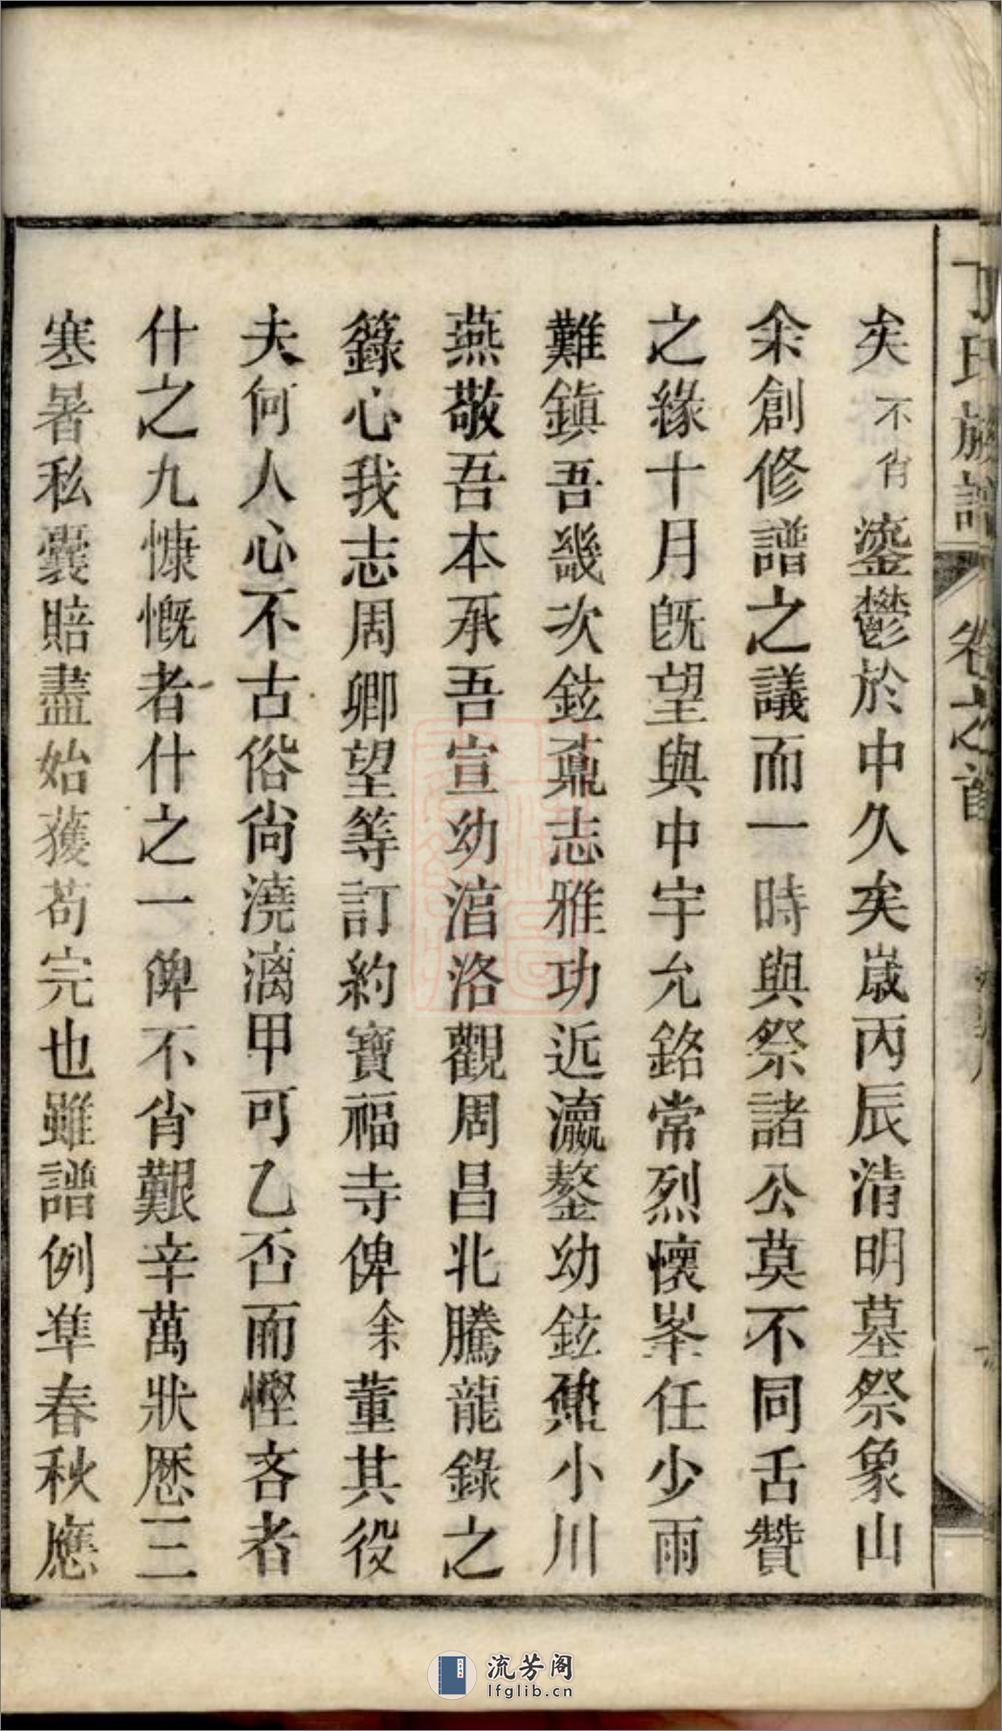 丁氏族譜 卷之首
矣不肖鎏鬱於中久矣歲丙辰清明墓祭象山
余創修譜之議而一時與祭諸公莫不同舌贊
之緣十月旣望與中宇允銘常烈懷峯任少雨
難鎮吾畿次鉉鼐志雅功近瀛鏊幼鉉鼐小川
燕敬吾本承吾宣幼涫洛觀周昌北騰龍錄之
籙心我志周卿望等訂約寶福寺俾余董其役
夫何人心不古俗尚澆漓甲可乙否而慳吝者
什之九慷慨者什之一俾不肖艱辛萬狀歷三
寒暑私囊賠盡始獲苟完也雖譜例準春秋應
流芳阁
lfglib.cn